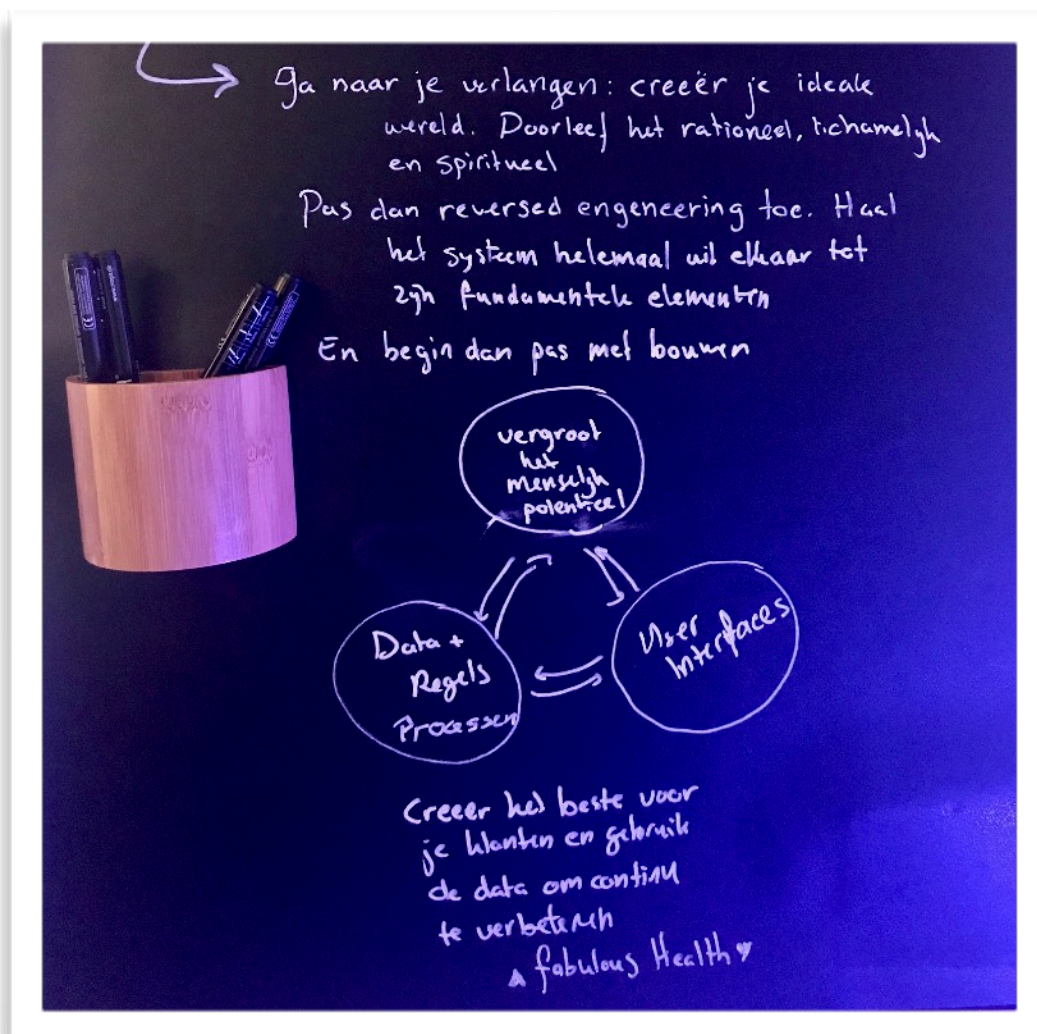 Ga naar je verlangen: creeër je ideale
wereld. Doorleef het rationeel, lichamelijk
en spiritueel
Pas dan reversed engeneering toe. Haal
het systeem helemaal uit elkaar tot
zijn fundamentele elementen
En begin dan pas met bouwen
vergroot
het
menselijk
potentieel
Data +
Regels
Processen
User
Interfaces
Creeer het beste voor
je klanten en gebruik
de data om continu
te verbeteren
fabulous Health